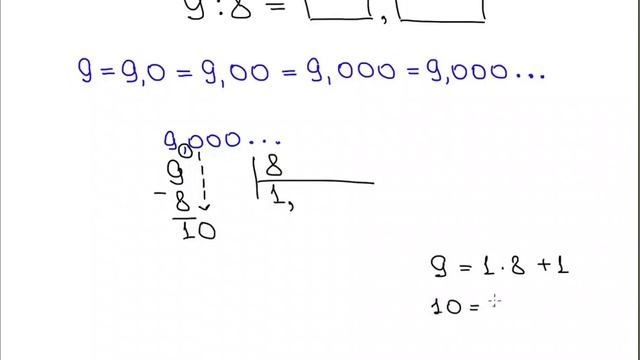 9 : 8 = ,
9 = 9,0 = 9,00 = 9,000 = 9,000...
9,000...
9 8
- 8 1,
10
9 = 1 · 8 + 1
10 =